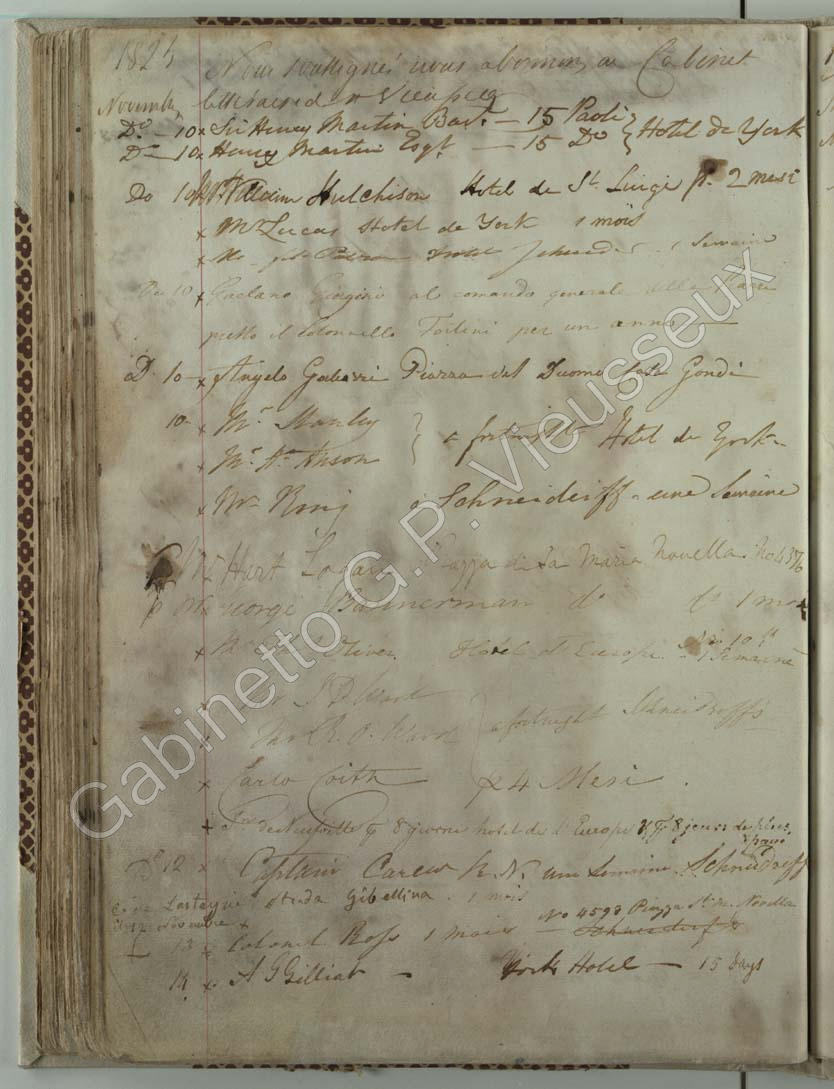 1825 Nous soussignés nous abonnons au Cabinet
Novembre litteraire de Vieusseux
Do - 10 x Sir Henry Martin Bart. - 15 Paoli } Hotel de York
Do - 10 x Henry Martin Esqr. - 15 Do
Do 10 William Hutchison Hotel de St. Luigi p. 2 mesi
x Mr Lucas Hotel de York 1 mois
x Hotel Schneider 1 Semaine
Do 10 x Gaetano Giorgini al comando generale della
presso il Colonnello Fortini per un anno
D. 10 - x Angelo Piazza del Duomo Casa Gondi
10 - x Mr. Manley } a fortnight Hotel de York
x Mr. Hy. Anson
x Mr King á Schneiderff - une Semaine
x Mr Hart Logan Piazza di Sa Maria Novella No 4376
George Bannerman do do 1 mois
x Mr Oliver. Hotel d'Europe 1 Semaine
x Mr J D Ward } a fortnight Schneidroffs
x Ward
x Carlo 4 Mesi.
x de Neufville 8 giorni hotel de l'Europe 8 jours de plus
Do 12 x Captain Carew R.N. une Semaine Schneidroff
Lasteyrie strada Gibellina. 1 mois
il 12 Novembre x
13 x Colonel Ross 1 mois - No 4598 Piazza Sta. M. Novella
14 x A G Gilliat - York Hotel - 15 days
Gabinetto G.P. Vieusseux